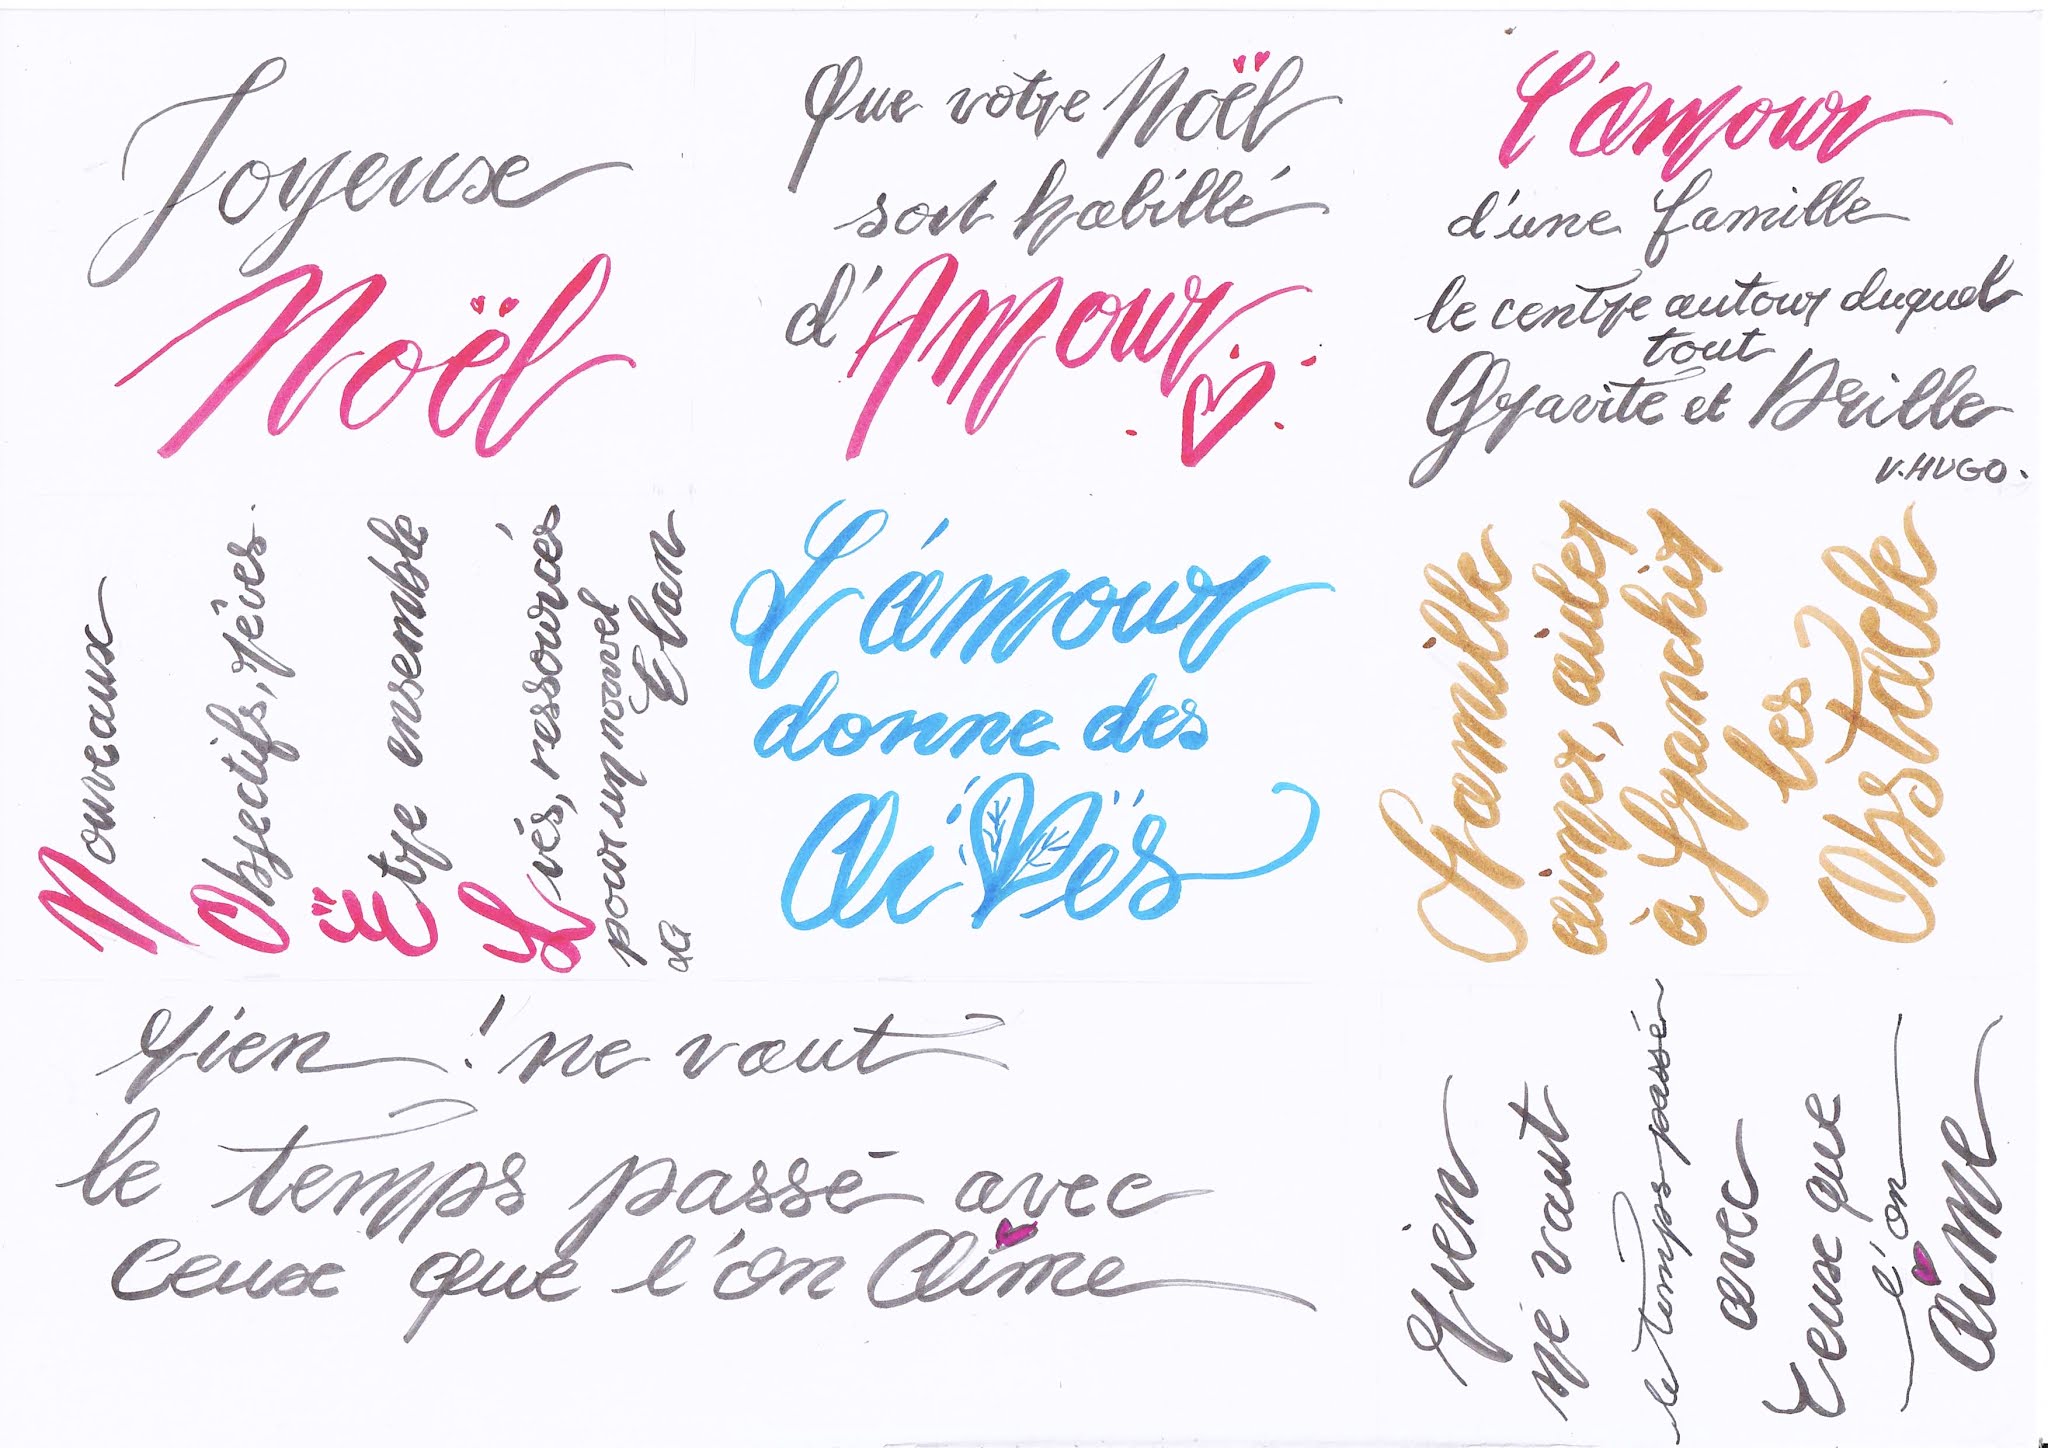 Joyeuse
Noël
Que votre Noël
soit habillé
d'Amour
l'amour
d'une famille
le centre autour duquel
tout
Gravite et Brille
V. HUGO.
Nouveaux
Objectifs, rêves.
Ëtre ensemble
Livés, ressourcés
pour un nouvel
Elan
L'amour
donne des
Ailes
Famille
aimer, aider
à franchir
les
Obstacle
rien ! ne vaut
le temps passé avec
ceux que l'on Aime
rien
ne vaut
le temps passé
avec
ceux que
l'on
aime